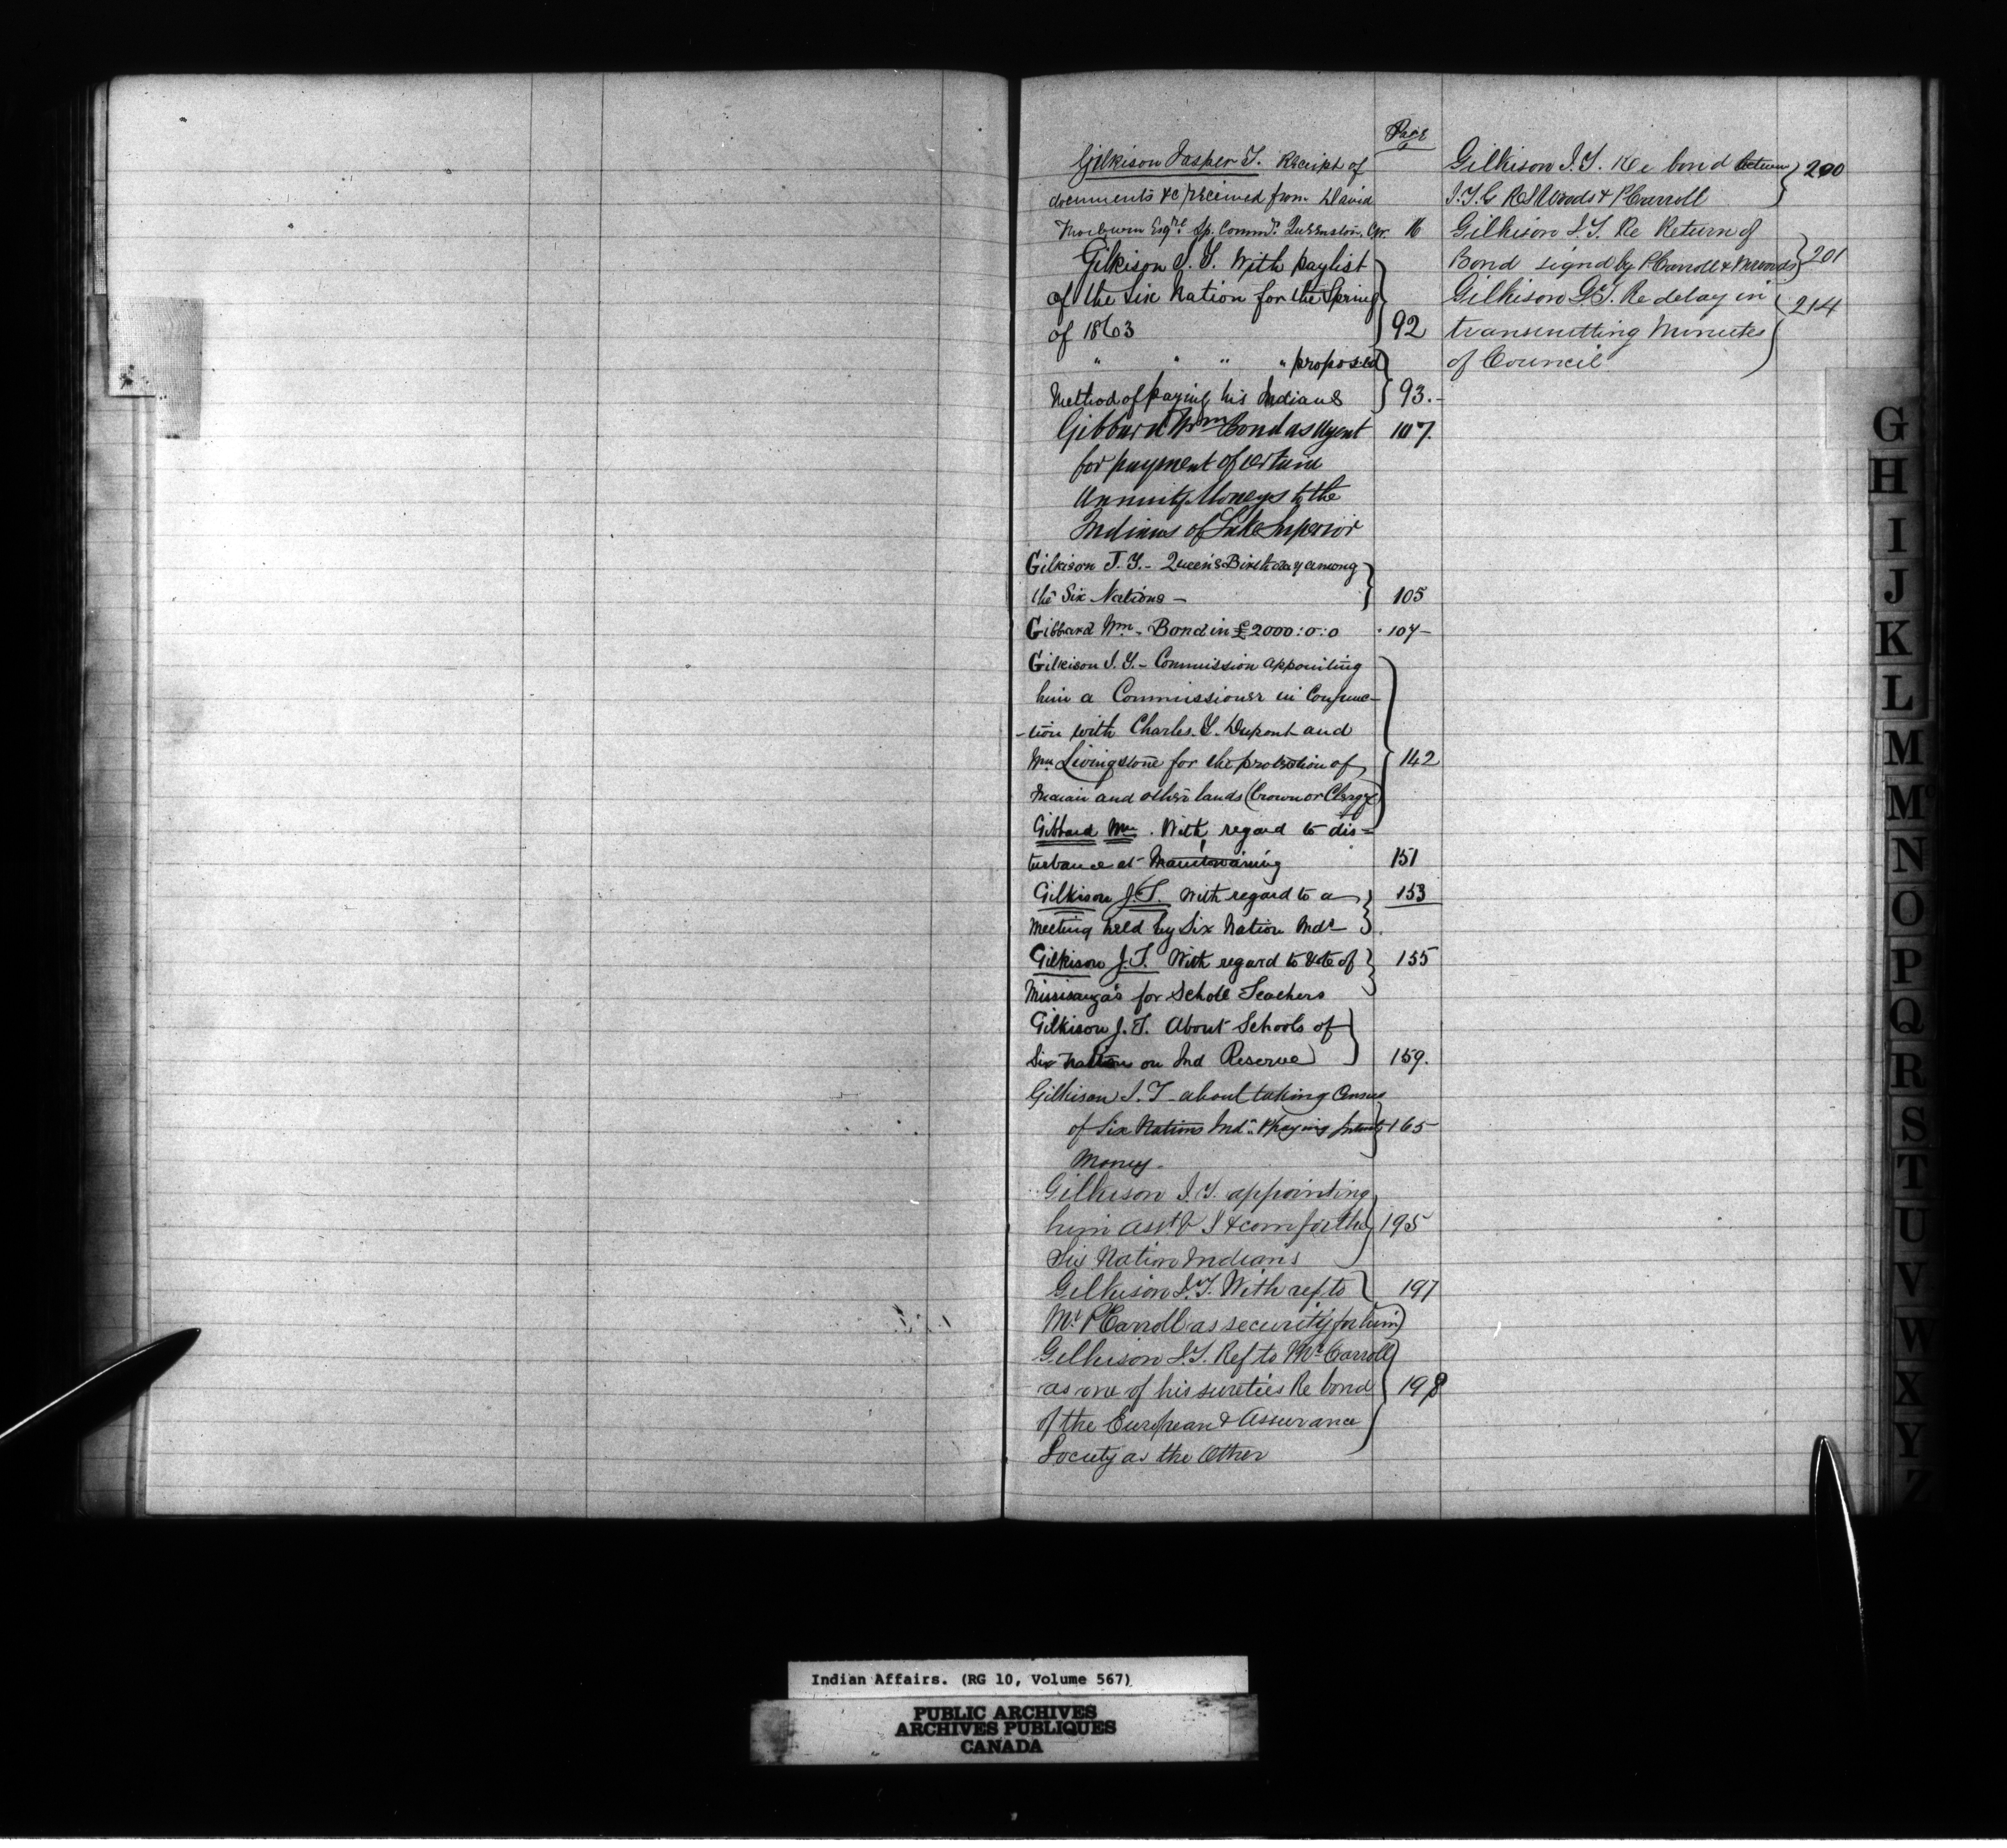 Page
Gilkison Jasper T. Receipt of
documents &c received from David
Thorburn Esqre Sp. Commr. Queenston. C.W. 16
Gilkison J. T. With paylist
of the Six Nation for the Spring
of 1863 92
" " " " proposed
Method of paying his Indians 93.-
Gibbard Wm Bond as Agent 107.
for payment of certain
Annuity Moneys to the
Indians of Lake Superior
Gilkison J. T. - Queen's Birthday among
the Six Nations - 105
Gibbard Wm. - Bond in £2000:0:0 107-
Gilkison J. T. - Commission appointing
him a Commissioner in Conjunc-
-tion with Charles. T. Dupont and
Wm Livingstone for the protection of 142
Indian and other lands (Crown or Clergy)
Gibbard Wm. With regard to dis=
turbance at Manitowaning 151
Gilkison J. T. With regard to a 153
Meeting held by Six Nation Inds
Gilkison J. T. With regard to Vote of 155
Missisauga's for Schole Teachers
Gilkison J. T. About Schools of
Six Nation on Ind Reserve 159.
Gilkison J. T. about taking Census
of Six Nations Inds & paying 165
Money-
Gilkison J. T. appointing
him Asst. & com for the 195
Six Nation Indians
Gilkison J. T. With ref to 197
Mr P Carroll as security for him
Gilkison J. T. Ref to Mr Carroll
as one of his sureties Re bond 198
of the European & Assurance
Society as the Other
Gilkison J. T. Re bond between 200
J. T. G R S Woods & P Carroll
Gilkison J. T. Re Return of
Bond signd by P Carroll & Woods 201
Gilkison J. T. Re delay in 214
transmitting Minutes
of Council
G
H
I
J
K
L
M
Mc
N
O
P
Q
R
S
T
U
V
W
X
Y
Z
Indian Affairs. (RG 10, Volume 567)
PUBLIC ARCHIVES
ARCHIVES PUBLIQUES
CANADA